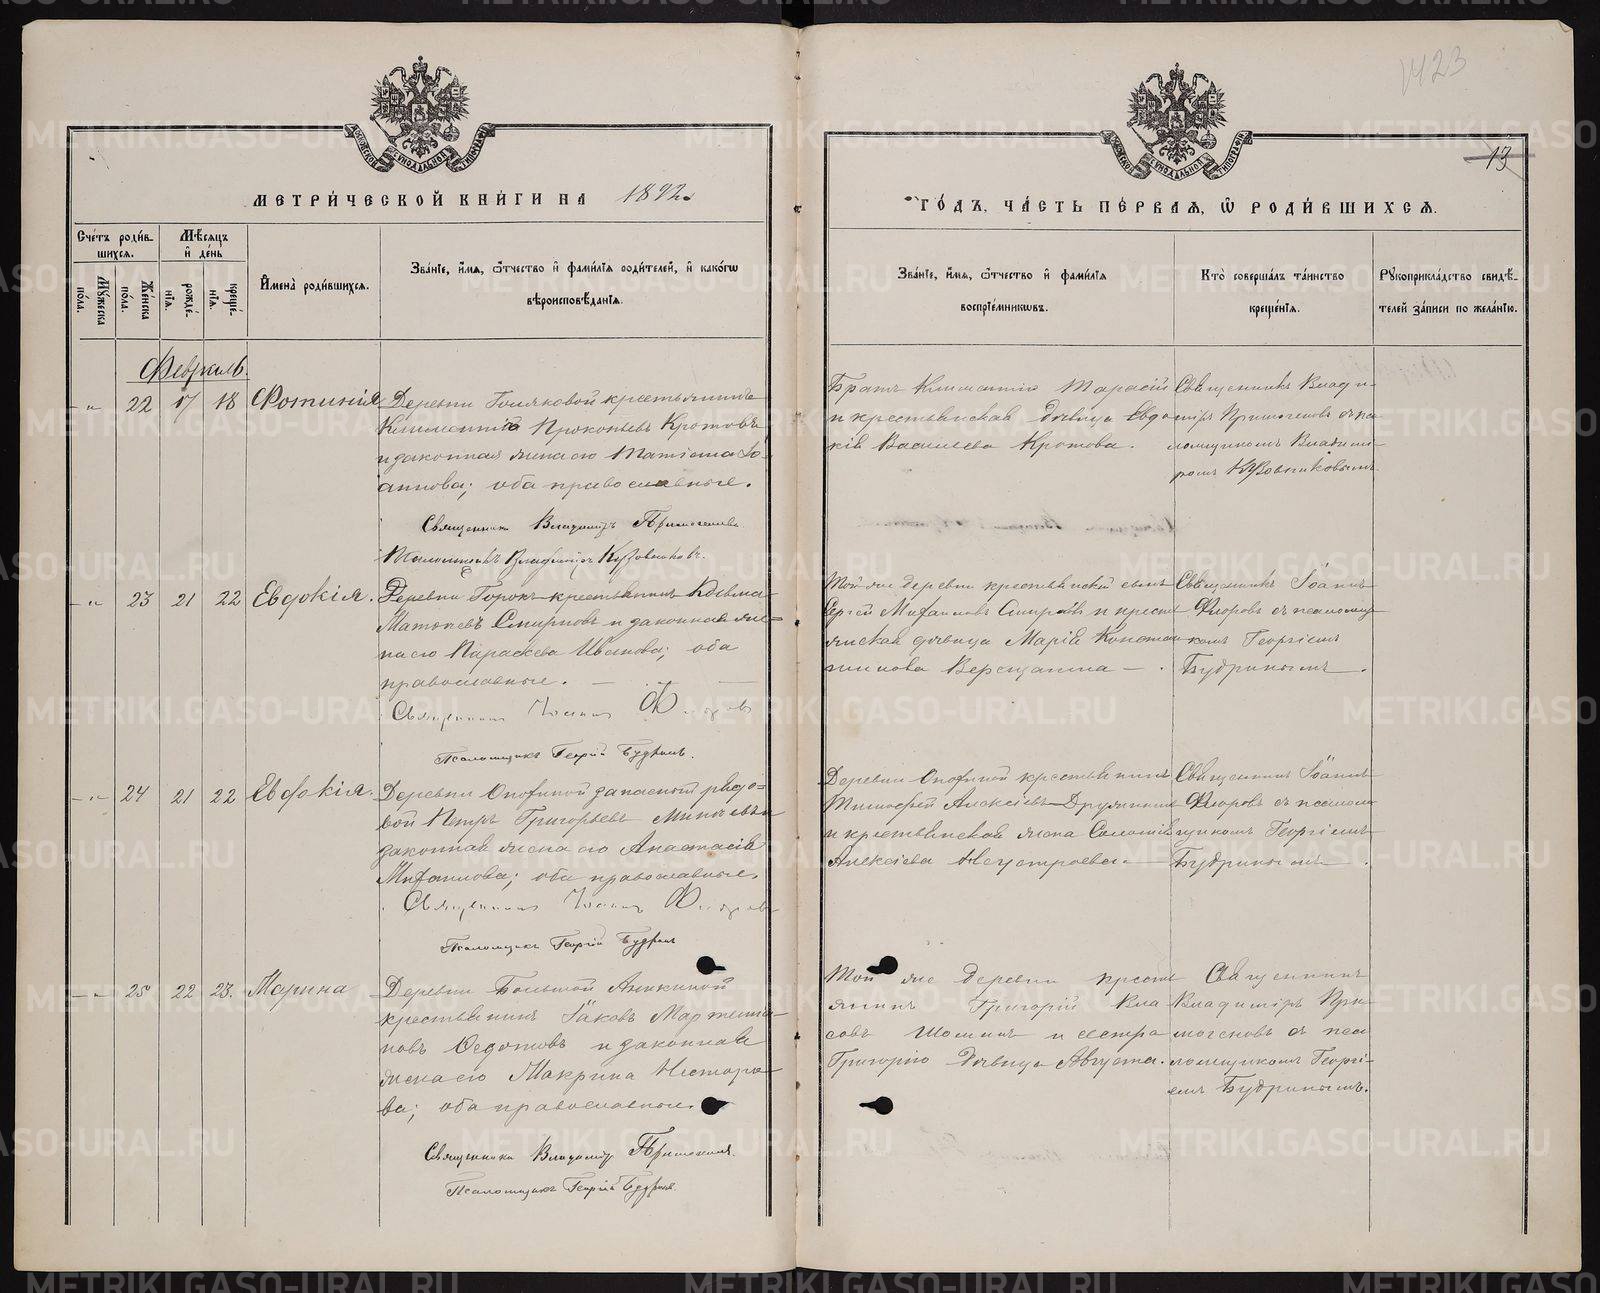 1423
13
ДꙊХОВСКОЙ СѴНОДАЛЬНОЙ ТИПОГРАФІИ
МЕТРИ́ЧЕСКОЙ КНИ́ГИ НА 1892
ГО́ДЪ, ЧА́СТЬ ПЕ́РВАЯ, Ѿ РОДИ́ВШИХСЯ.
Сче́тъ роди́в-
шихся.
Мужеска по́ла.
Же́нска по́ла.
Мѣ́сяцъ
и́ де́нь
рожде́нїя.
креще́нїя.
И҆мена̀ роди́вшихся.
Зва́нїе, и҆́мя, ѻ҆́тчество и҆ фами́лїя роди́телей, и҆ како́гѡ
вѣроисповѣ́данїя.
Зва́нїе, и҆́мя, ѻ҆́тчество и҆ фами́лїя
воспрїе́мникѡвъ.
Кто̀ соверша́лъ та́инство
креще́нїя.
Рꙋкоприкла́дство свидѣ́-
телей за́писи по жела́нїю.
Февраль.
-"- 22 17 18 Фотинія
Деревни Голяковой крестьянинъ
Климентій Прокопьевъ Кротовъ
и законная жена его Матрона Іо-
аннова; оба православные.
Священникъ Владиміръ
Псаломщикъ Владиміръ
Братъ Климентія Тарасій
и крестьянская дѣвица Евдо
кія Васильева Кротова.
Священникъ Влади-
міръ съ пса
ломщикомъ Владими-
ромъ
-"- 23 21 22 Евдокія.
Деревни Горокъ крестьянинъ Козьма
Матѳіевъ Смирновъ и законная же-
на его Параскева Иванова; оба
православные.
Священникъ Іоаннъ Флоровъ
Псаломщикъ Георгій Будринъ.
Той же деревни крестьянскій сынъ
Сергѣй Михаиловъ Смирновъ и кресть
янская дѣвица Марія Констан
тинова Верещагина
Священникъ Іоаннъ
Флоровъ съ псаломщи
комъ Георгіемъ
Будринымъ.
-"- 24 21 22 Евдокія.
Деревни запасный рядо-
вой Петръ Григорьевъ и
законная жена его Анастасія
Михаилова; оба православные.
Священникъ Іоаннъ Флоровъ
Псаломщикъ Георгій Будринъ
Деревни крестьянинъ
Тимофей Алексіевъ Дружинин
и крестьянская жена Соломія
Алексіева
Священникъ Іоаннъ
Флоровъ съ псалом
щикомъ Георгіемъ
Будринымъ.
-"- 25 22 23. Марина
Деревни Большой Аникиной
крестьянинъ Іаковъ Мартемья-
новъ Ѳедотовъ и законная
жена его Макрина Несторо-
ва; оба православные.
Священникъ Владиміръ
Псаломщикъ Георгій Будринъ.
Той же деревни кресть
янинъ Григорій Вла
совъ и сестра
Григорію дѣвица Августа.
Священникъ
Владиміръ При-
съ пса
ломщикомъ Георгі-
емъ Будринымъ.